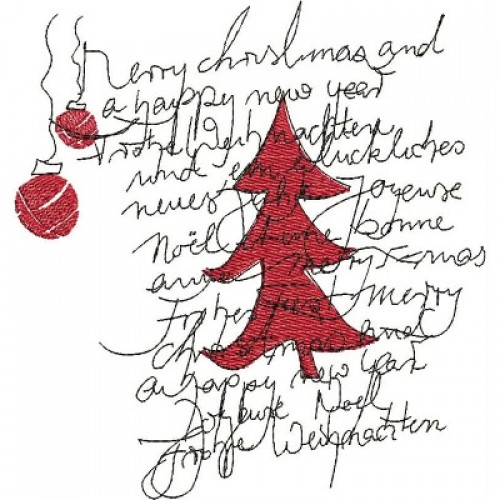 Merry christmas and
a happy new year
Frohe Weihnachten
und ein glückliches
neues Jahr Joyeuse
Noël et une bonne
année merry xmas
Frohes Fest Merry
christmas and
a happy new year
Joyeuse Noël
Frohe Weihnachten